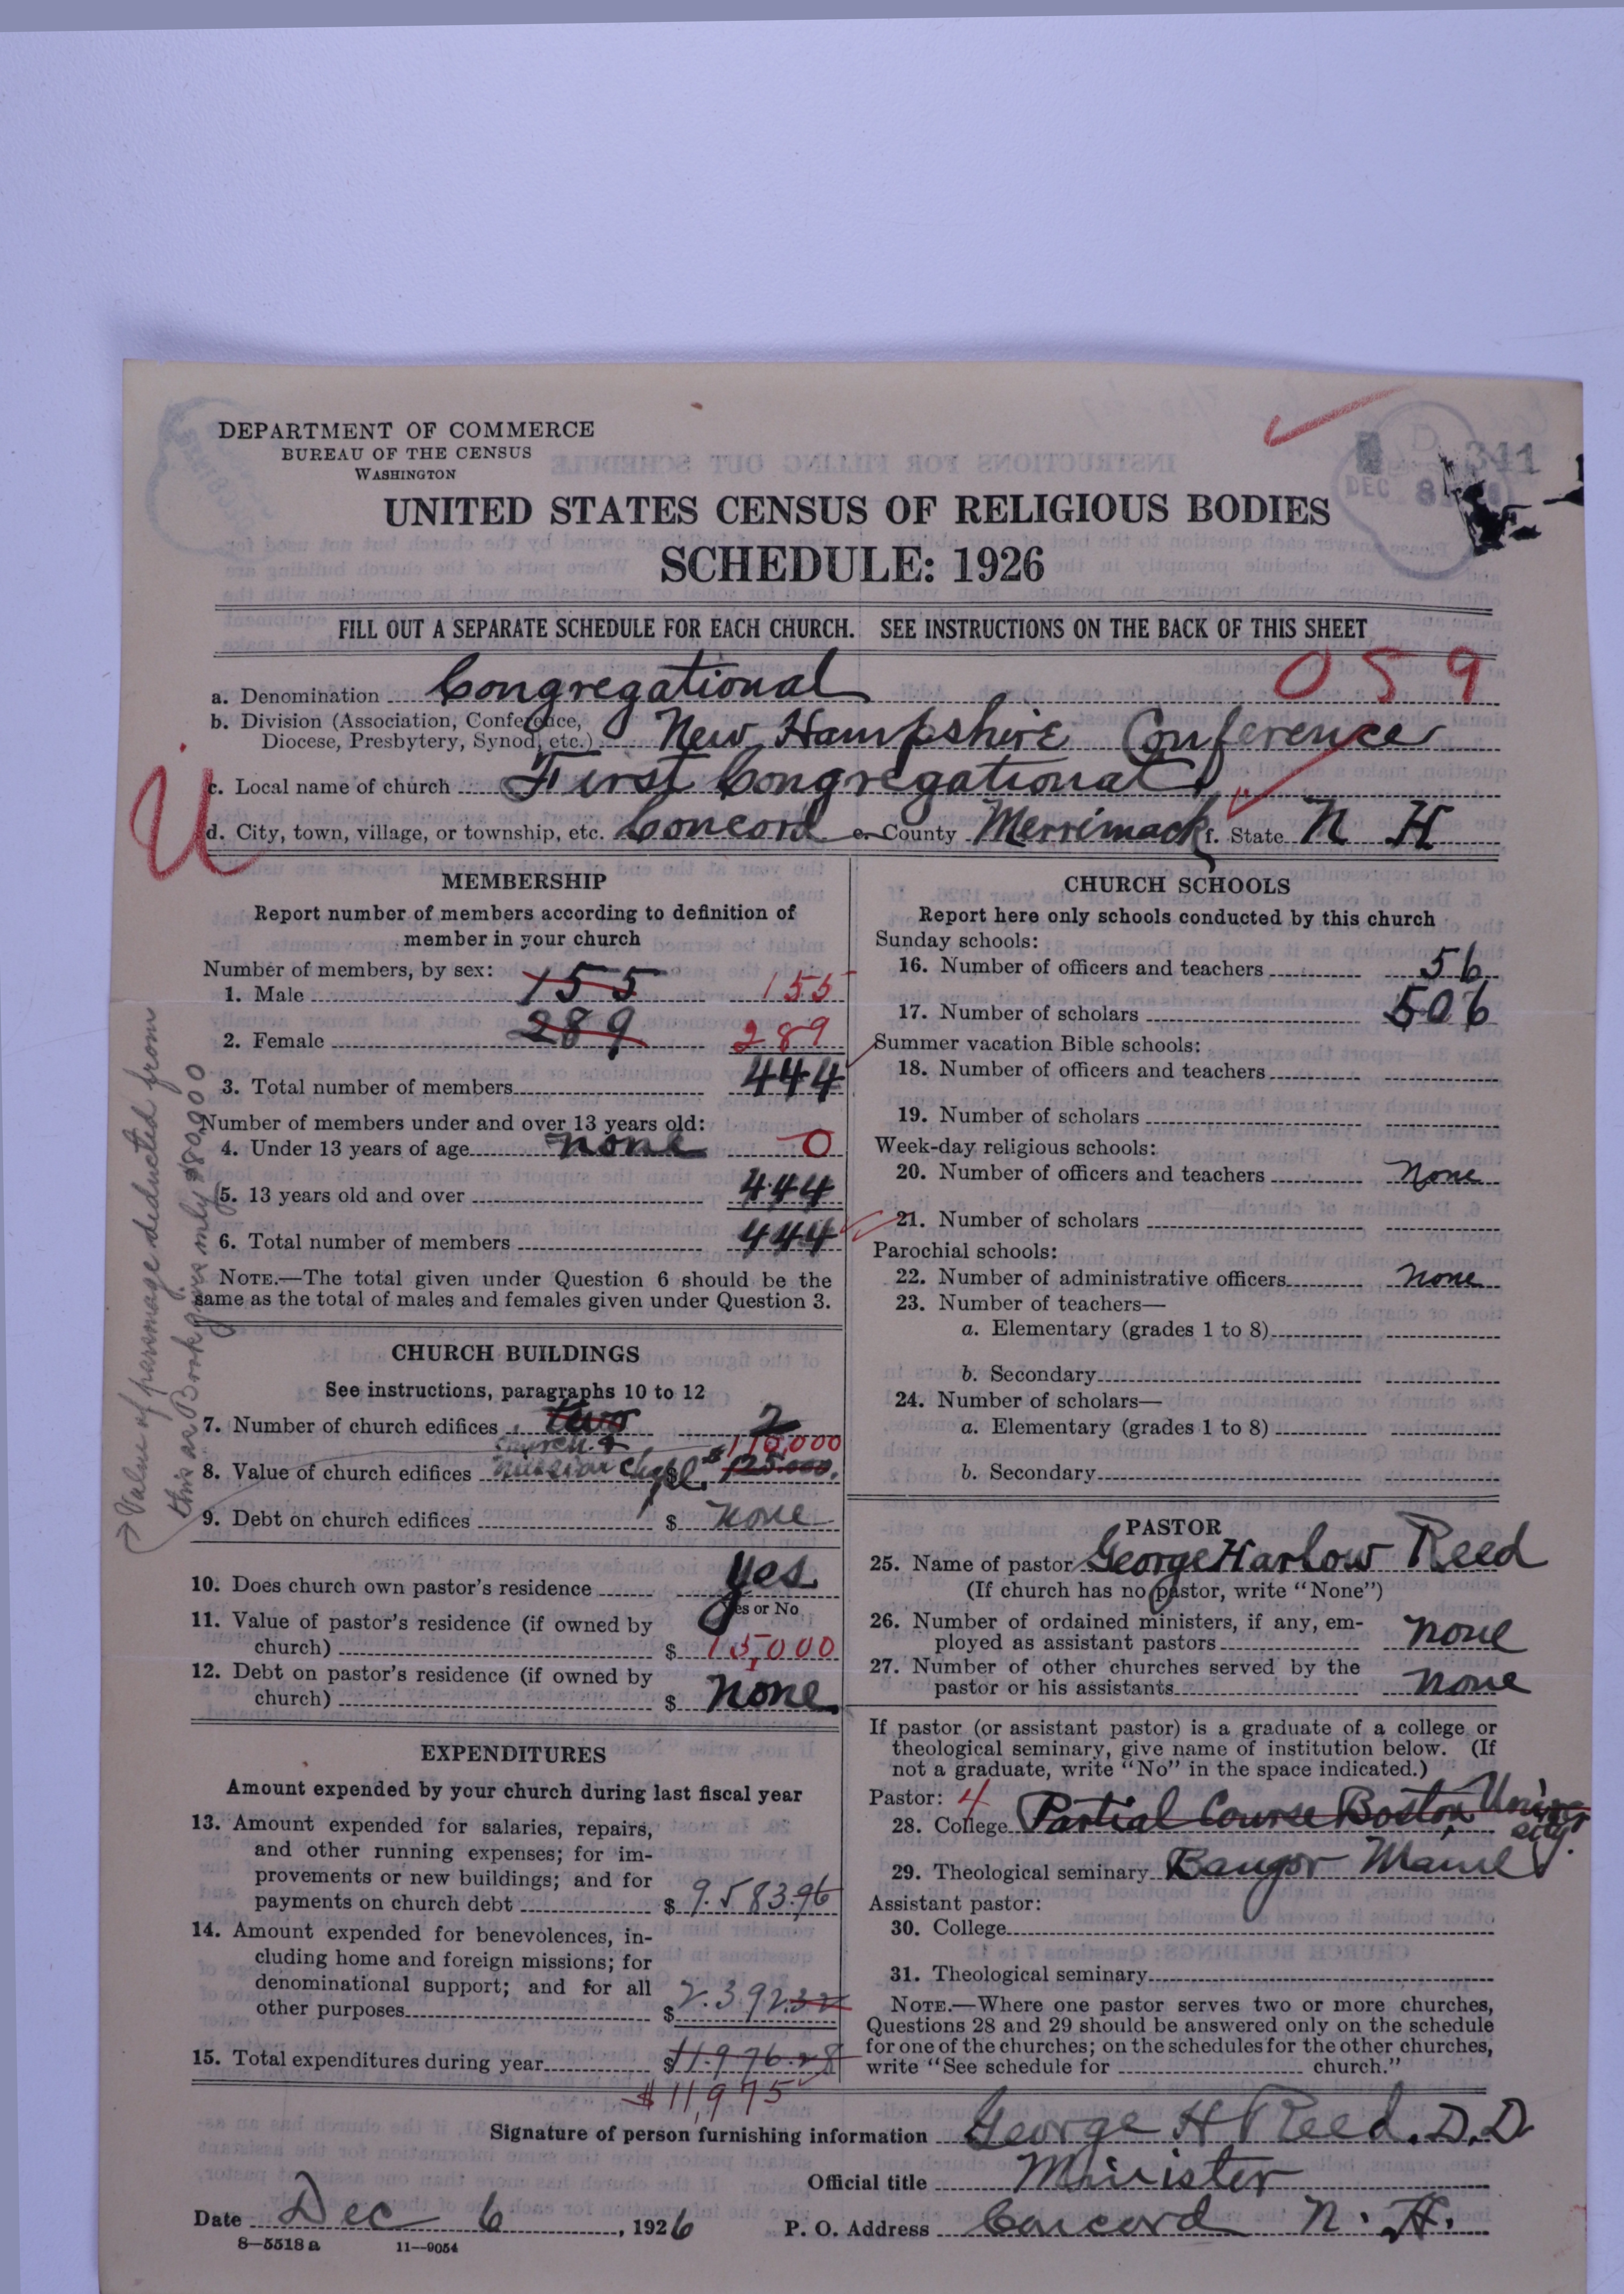 DEPARTMENT OF COMMERCE
BUREAU OF THE CENSUS
WASHINGTON
311
DEC 8
UNITED STATES CENSUS OF RELIGIOUS BODIES
SCHEDULE: 1926
FILL OUT A SEPARATE SCHEDULE FOR EACH CHURCH. SEE INSTRUCTIONS ON THE BACK OF THIS SHEET
059
a. Denomination Congregational
b. Division (Association, Conference, Diocese, Presbytery, Synod, etc.) New Hampshire Conference
c. Local name of church First Congregational
d. City, town, village, or township, etc. Concord e. County Merrimack f. State N H
MEMBERSHIP
Report number of members according to definition of
member in your church
Number of members, by sex:
1. Male 155 155
2. Female 289 289
3. Total number of members 444
Number of members under and over 13 years old:
4. Under 13 years of age none 0
5. 13 years old and over 444
6. Total number of members 444
NOTE.—The total given under Question 6 should be the
same as the total of males and females given under Question 3.
Value of parsonage deducted from
this as Book gives only $80,000
CHURCH BUILDINGS
See instructions, paragraphs 10 to 12
7. Number of church edifices two 2
church &
110,000
8. Value of church edifices mission chapel $ 125.000.
9. Debt on church edifices $ none
10. Does church own pastor's residence yes
Yes or No
11. Value of pastor's residence (if owned by
church) $ 15,000
12. Debt on pastor's residence (if owned by
church) $ none
EXPENDITURES
Amount expended by your church during last fiscal year
13. Amount expended for salaries, repairs,
and other running expenses; for im-
provements or new buildings; and for
payments on church debt $ 9.583.96
14. Amount expended for benevolences, in-
cluding home and foreign missions; for
denominational support; and for all
other purposes $ 2.392.32
15. Total expenditures during year $ 11.976.28
$11,975
CHURCH SCHOOLS
Report here only schools conducted by this church
Sunday schools:
16. Number of officers and teachers 56
17. Number of scholars 506
Summer vacation Bible schools:
18. Number of officers and teachers
19. Number of scholars
Week-day religious schools:
20. Number of officers and teachers None
21. Number of scholars
Parochial schools:
22. Number of administrative officers None
23. Number of teachers—
a. Elementary (grades 1 to 8)
b. Secondary
24. Number of scholars—
a. Elementary (grades 1 to 8)
b. Secondary
PASTOR
25. Name of pastor George Harlow Reed
(If church has no pastor, write "None")
26. Number of ordained ministers, if any, em-
ployed as assistant pastors none
27. Number of other churches served by the
pastor or his assistants none
If pastor (or assistant pastor) is a graduate of a college or
theological seminary, give name of institution below. (If
not a graduate, write "No" in the space indicated.)
Pastor: 4
28. College Partial Course Boston University.
29. Theological seminary Bangor Maine
Assistant pastor:
30. College
31. Theological seminary
NOTE.—Where one pastor serves two or more churches,
Questions 28 and 29 should be answered only on the schedule
for one of the churches; on the schedules for the other churches,
write "See schedule for church."
Signature of person furnishing information George H Reed. D.D
Official title Minister
Date Dec 6, 1926 P. O. Address Concord N. H.
8—5518 a 11—9054